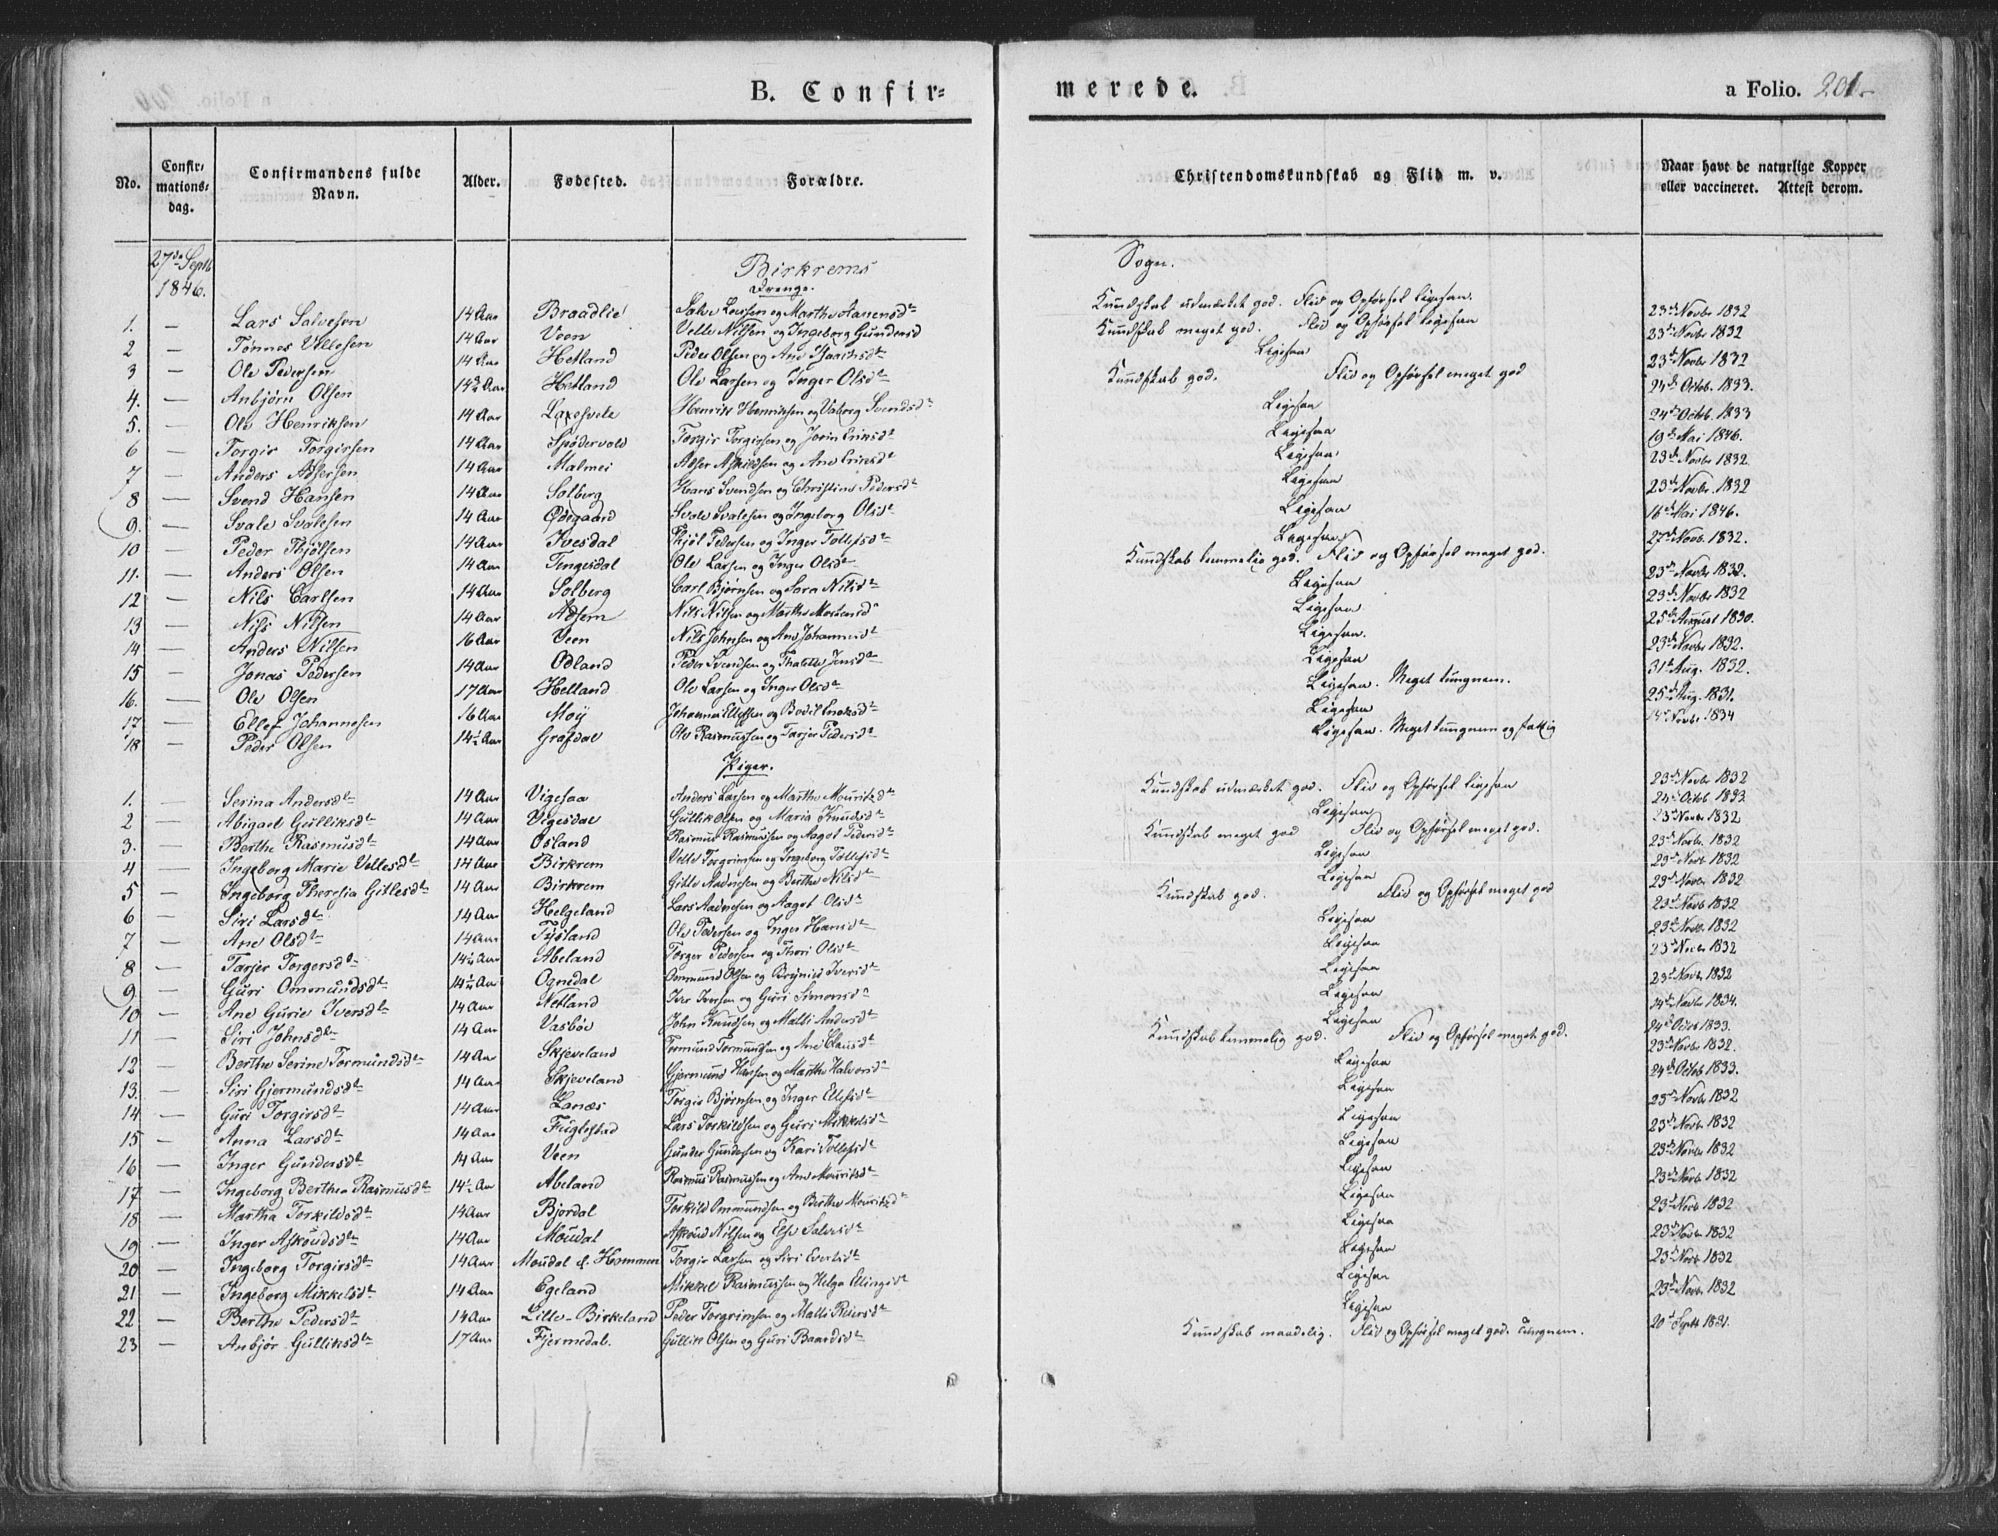 B. Confir-
merede.
a Folio. 201.
No.
Confir-
mations-
dag.
Confirmandens fulde
Navn.
Alder.
Fødested.
Forældre.
Christendomskundskab og Flid m. v.
Naar havt de naturlige Kopper
eller vaccineret. Attest derom.
27de Septb
1846.
Birkrems Sogn.
Drenge.
1. — Lars Salvesen 14 Aar Braadlie Salve Larsen og Marthe Aanensdt Kundskab udmærket god. Flid og Opførsel ligesaa. 23de Novbr 1832
2 — Tønnes Vellesen 14 Aar Veen Velle Nilsen og Ingeborg Gundersd Kundskab meget god. Flid og Opførsel ligesaa 23de Novbr 1832
3 — Ole Pedersen 14 Aar Hetland Peder Olsen og Ane Isaachsdt Ligesaa 23de Novbr 1832
4. — Anbjörn Olsen 14¾ Aar Hetland Ole Larsen og Inger Olsdt Kundskab god. Flid og Opførsel meget god 24de Octbr. 1833.
5. — Ole Henriksen 14 Aar Laxesvele Henrik Henriksen og Valborg Svendsdt Ligesaa 24de Octbr 1833
6 — Torgir Torgirsen 14 Aar Spödervold Torgir Torgirsen og Jorin Eriksdt Ligesaa 19de Mai 1846.
7 — Anders Adsersen 14 Aar Malmei Adser Askildsen og Ane Eriksdt Ligesaa 23de Novbr 1832.
8 — Svend Hansen 14 Aar Solberg Hans Svendsen og Christine Pedersdt Ligesaa 23de Novbr. 1832
9. — Svale Svalesen 14 Aar Ødegaard Svale Svalesen og Ingeborg Olsdt Ligesaa 16de Mai 1846.
10 — Peder Thjölsen 14 Aar Ivesdal Thjöl Pedersen og Inger Tollefsdt Ligesaa 27de Novb. 1832.
11. — Anders Olsen 14 Aar Tengesdal Ole Larsen og Inger Olsdt Kundskab temmelig god. Flid og Opførsel meget god. 23de Novbr 1832.
12 — Nils Carlsen 14 Aar Solberg Carl Björnsen og Sara Nilsdt Ligesaa 23de Novbr 1832
13 — Nils Nilsen 14 Aar Adsem Nils Nilsen og Marthe Ligesaa 25de August 1830.
14 — Anders Nilsen 16 Aar Veen Nils Johnsen og Ane Johannesdt Ligesaa. 23de Novbr 1832.
15 — Jonas Pedersen 14 Aar Odland Peder Svendsen og Thalette Jensdt Ligesaa 31te Aug. 1832.
16. — Ole Olsen 17 Aar Hetland Ole Larsen og Inger Olsdt Ligesaa. Meget tungnem. 25de Aug. 1831.
17. — Ellef Johannesen 16 Aar Moÿ Johannes Ellefsen og Bodil Enoksdt Ligesaa 14de Novbr 1834
18 — Peder Olsen 14½ Aar Grafdal Ole Rasmussen og Tarjer Pedersdt Ligesaa. Meget tungnem og fattig
Piger.
1. — Serina Andersdt 14 Aar Vigesaa Anders Larsen og Marthe Mouritzdt Kundskab udmærket god. Flid og Opførsel ligesaa 23de Novbr 1832
2 — Abigael Gulliksdt 14 Aar Vigesdal Gullik Olsen og Maria Knudsdt Ligesaa 24de Octob 1833
3. — Berthe Rasmusdt 14 Aar Osland Rasmus Rasmussen og Aagot Pedersdt Kundskab meget god Flid og Opførsel meget god. 23de Novbr 1832
4 — Ingeborg Marie Vellesdt 14 Aar Birkrem Velle Torgrimsen og Ingeborg Tollefsdt Ligesaa 23de Novbr. 1832
5 — Ingeborg Theresia Gitlesdt 14 Aar Birkrem Gitle Aadnesen og Berthe Nilsdt Ligesaa 23de Novb 1832
6 — Siri Larsdt 14 Aar Helgeland Lars Aadnesen og Aagot Olsdt Kundskab god. Flid og Opførsel meget god 23de Novbr. 1832
7 — Ane Olsdt 14 Aar Tÿsland Ole Pedersen og Inger Hansdt Ligesaa 23de Novbr 1832
8 — Tarjer Torgersdt 14½ Aar Abeland Torger Pedersen og Thori Olsdt Ligesaa 23de Novbr. 1832
9 — Guri Ommundsdt 14½ Aar Ognedal Ommund Olsen og Brynild Iversdt Ligesaa 23de Novbr 1832
10 — Ane Gurie Iversdt 14 Aar Netland Iver Iversen og Guri Simonsdt Ligesaa 23de Novb. 1832
11 — Siri Johnsdt 14 Aar Vasböe John Knudsen og Malli Andersdt Ligesaa 14de Novbr 1834.
12 — Berthe Serine Tormundsdt 14 Aar Skjeveland Tormund Tormundsen og Ane Clausdt Kundskab temmelig god. Flid og Opførsel meget god. 24de Octob 1833.
13. — Siri Gjermundsdt 14 Aar Skjeveland Gjermund Hansen og Marthe Halvorsdt Ligesaa 23de Novbr 1832.
14 — Guri Torgirsdt 14 Aar Lanæs Torgir Björnsen og Inger Ellefsdt Ligesaa 24de Octbb 1833.
15 — Anna Larsdt 14 Aar Fuglestad Lars Torkildsen og Guri Mikkelsdt Ligesaa 23de Novbr 1832
16 — Inger Gundersdt 14 Aar Veen Gunder Gundersen og Kari Tollefsdt Ligesaa 23de Novbr 1832
17 — Ingeborg Berthea Rasmusdt 14½ Aar Abeland Rasmus Rasmussen og Ane Mouritsdt Ligesaa 23de Novbr 1832
18 — Martha Torkildsdt 14 Aar Bjordal Torkild Ommundsen og Berthe Mouritsdt Ligesaa 23de Novb 1832
19 — Inger Askoudsdt 14 Aar Moudal Askoud Nilsen og Else Salvesdt Ligesaa 23de Novb 1832
20 — Ingeborg Torgirsdt 14 Aar Moudal d. Hommen Torgir Larsen og Siri Evertsdt Ligesaa 23de Novbr 1832
21 — Ingeborg Mikkelsdt 14 Aar Egeland Mikkel Rasmussen og Helga Ellingsdt Ligesaa 23de Novb 1832
22 — Berthe Pedersdt 14 Aar Lille-Birkeland Peder Torgrimsen og Malli Reiersdt Ligesaa 23de Novbr 1832
23 — Anbjör Gulliksdt 17 Aar Fjermedal. Gullik Olsen og Guri Baardsdt Kundskab maadelig. Flid og Opførsel meget god. Tungnem. 20de Septb 1831.